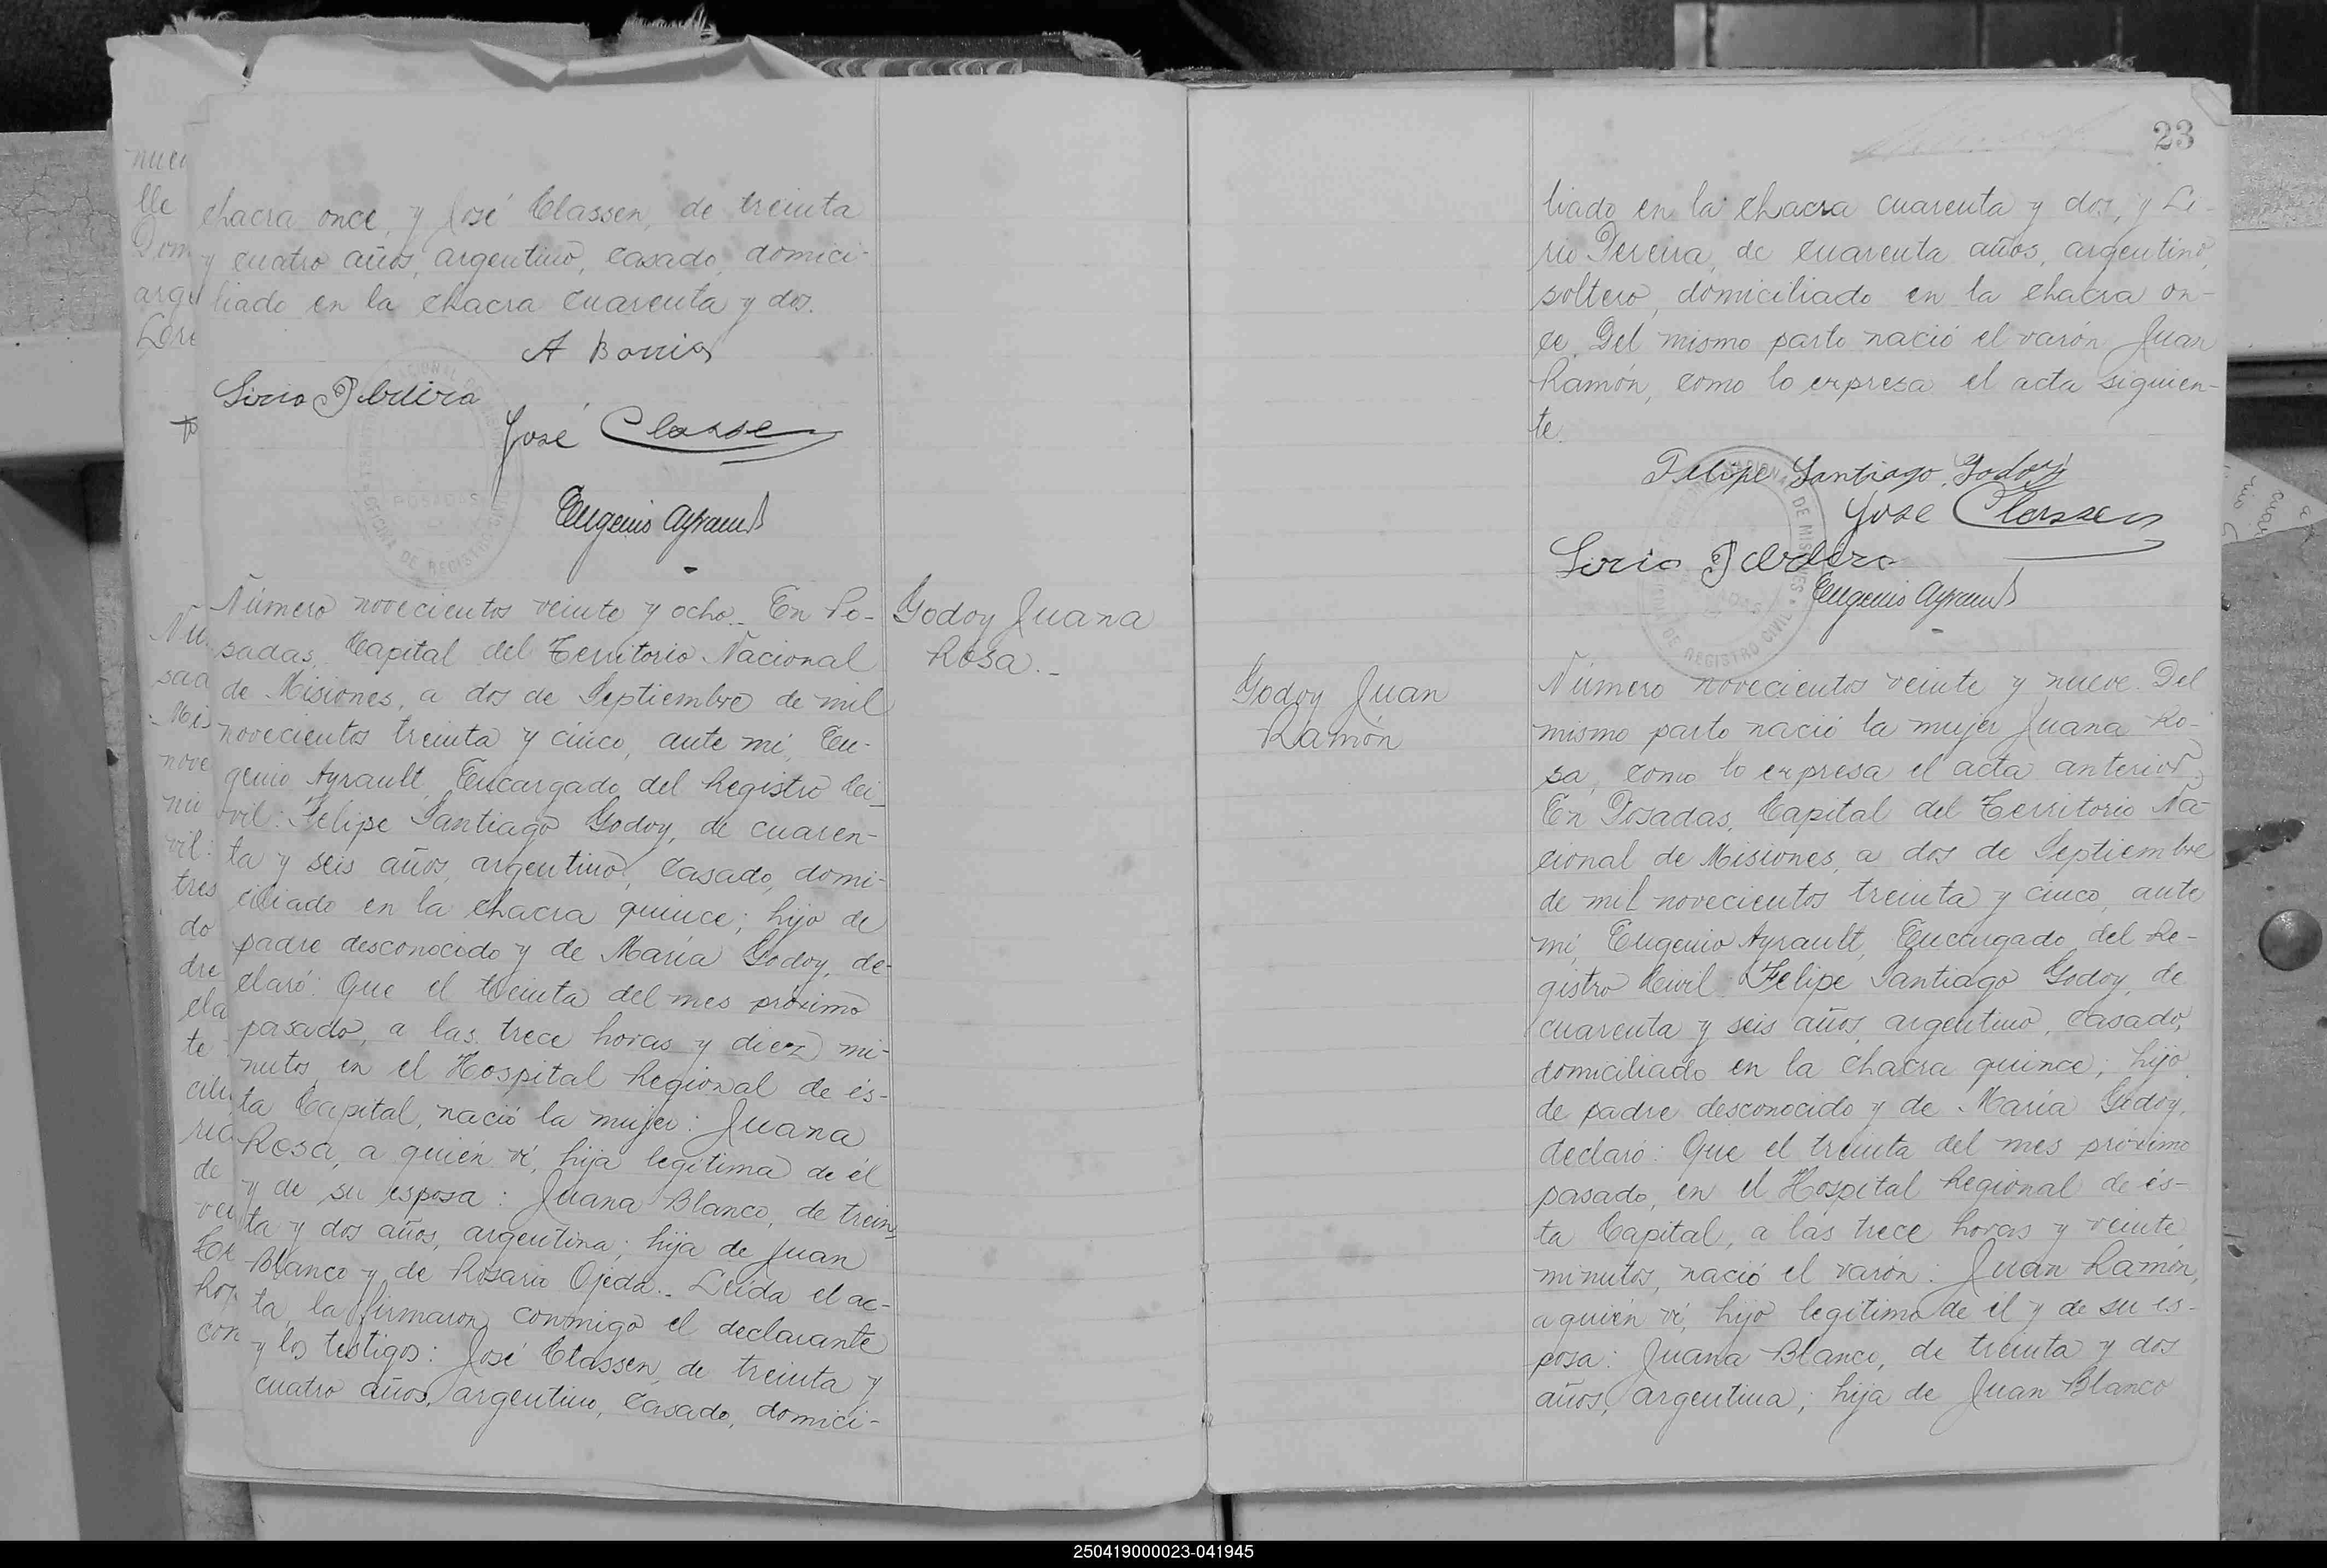 chacra once, y José Classen, de treinta
y cuatro años, argentino, casado, domici-
liado en la chacra cuarenta y dos.
Lirio Pereira
José Classen
Eugenio Ayrault
Número novecientos veinte y ocho.- En Po-
sadas, Capital del Territorio Nacional
de Misiones, a dos de Septiembre de mil
novecientos treinta y cinco, ante mi, Eu-
genio Ayrault, Encargado del Registro Ci-
vil: Felipe Santiago Godoy, de cuaren-
ta y seis años, argentino, casado, domi-
ciliado en la chacra quince; hijo de
padre desconocido y de María Godoy, de-
claró: Que el treinta del mes próximo
pasado, a las trece horas y diez mi-
nutos, en el Hospital Regional de és-
ta Capital, nació la mujer: Juana
Rosa, a quién ví, hija legítima de él
y de su esposa: Juana Blanco, de trein
ta y dos años, argentina; hija de Juan
Blanco y de Rosario Ojeda.- Leída el ac-
ta, la firmaron conmigo el declarante
y los testigos: José Classen, de treinta y
cuatro años, argentino, casado, domici-
Godoy Juana
Rosa.-
23
liado en la chacra cuarenta y dos, y Li-
rio Pereira, de cuarenta años, argentino,
soltero, domiciliado en la chacra on-
ce. Del mismo parto nació el varón Juan
Ramón, como lo expresa el acta siguien-
te.
Felipe Santiago Godoy
José Classen
Lirio Pereira
Eugenio Ayrault
Godoy Juan
Ramón
Número novecientos veinte y nueve. Del
mismo parto nació la mujer Juana Ro-
sa, como lo expresa el acta anterior.
En Posadas, Capital del Territorio Na-
cional de Misiones, a dos de Septiembre
de mil novecientos treinta y cinco, ante
mi, Eugenio Ayrault, Encargado del Re-
gistro Civil: Felipe Santiago Godoy, de
cuarenta y seis años, argentino, casado,
domiciliado en la chacra quince; hijo
de padre desconocido y de María Godoy,
declaró: Que el treinta del mes próximo
pasado, en el Hospital Regional de és-
ta Capital, a las trece horas y veinte
minutos, nació el varón: Juan Ramón,
a quién ví, hijo legítimo de él y de su es-
posa: Juana Blanco, de treinta y dos
años, argentina; hija de Juan Blanco
250419000023-041945